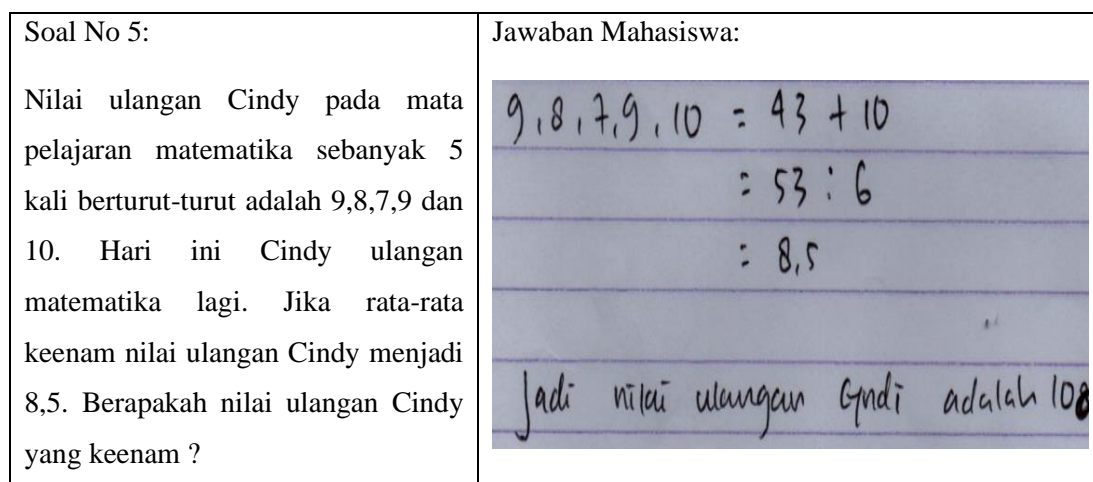 Soal No 5:
Nilai ulangan Cindy pada mata
pelajaran matematika sebanyak 5
kali berturut-turut adalah 9,8,7,9 dan
10. Hari ini Cindy ulangan
matematika lagi. Jika rata-rata
keenam nilai ulangan Cindy menjadi
8,5. Berapakah nilai ulangan Cindy
yang keenam ?
Jawaban Mahasiswa:
9,8,7,9,10 = 43 + 10
= 53 : 6
= 8,5
Jadi nilai ulangan Cyndi adalah